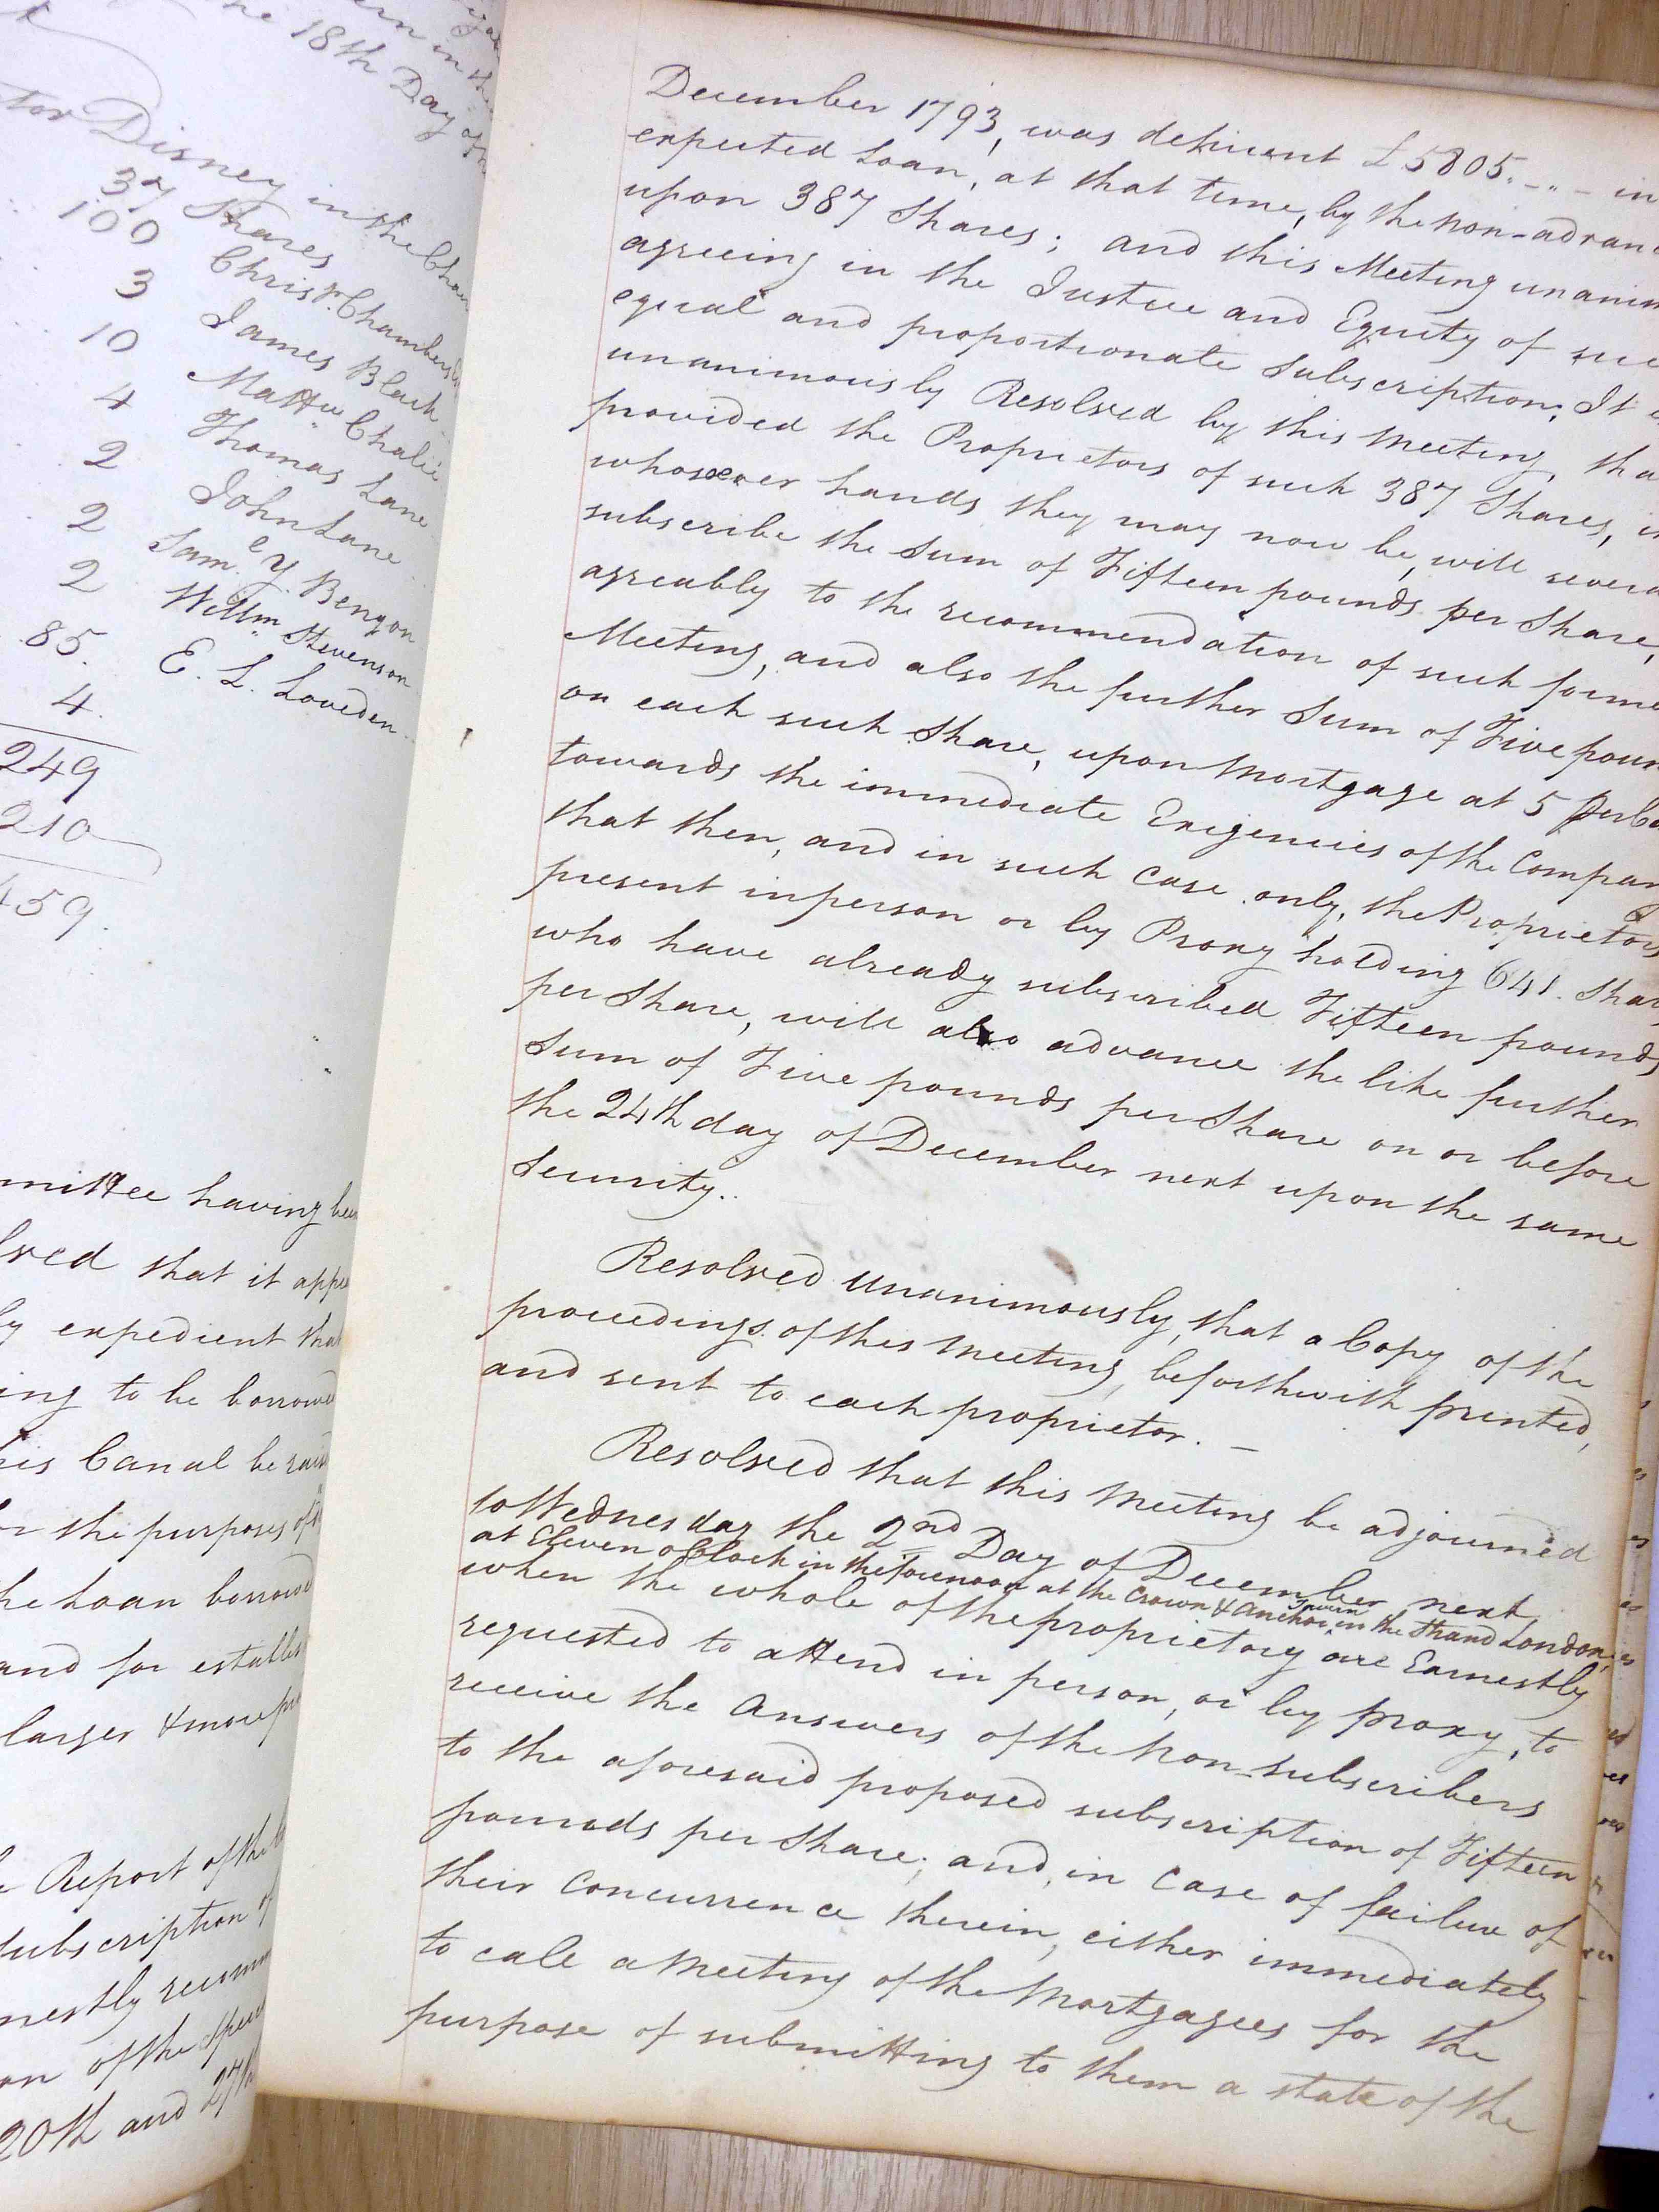 the 18th Day of
tor Disney in the Chair
37 Shares
100 Christr. Chambers
3 James Black
10 Mattw. Chalié
4 Thomas Lane
2 John Lane
2 Saml. Y. Benyon
2 Willm. Stevenson
85. E. L. Loveden
4.
249
210
459.
mittee having been
lved that it appe
ly expedient that
ing to be borrowed
his Canal be raised
or the purposes of
he Loan borrowed
and for establis
larger & more pr
Report of the
Subscription of
nestly recomm
on of the
20th and 27th
December 1793, was deficient £5805.-"- in
expected Loan, at that time, by the non-advanc
upon 387 Shares; and this Meeting unanim
agreeing in the Justice and Equity of suc
equal and proportionate Subscription, It
unanimously Resolved by this Meeting, tha
provided the Proprietors of such 387 Shares, in
whosoever hands they may now be, will severa
subscribe the Sum of Fifteen pounds per Share,
agreably to the recommendation of such forme
Meeting, and also the further Sum of Five poun
on each such Share, upon Mortgage at 5 per Ce
towards the immediate Exigencies of the Company
that then, and in such case only, the Proprietors
present in person or by Proxy holding 641. Shar
who have already subscribed Fifteen pounds
per Share, will also advance the like further
Sum of Five pounds per Share on or before
the 24th day of December next upon the same
Security..
Resolved unanimously, that a Copy of the
proceedings of this Meeting, be forthwith printed,
and sent to each proprietor. -
Resolved that this Meeting be adjourned
to Wednesday the 2nd Day of December next
at Eleven o'Clock in the forenoon at the Crown & Anchor Tavern in the Strand London,
when the whole of the proprietory are Earnestly
requested to attend in person, or by proxy, to
receive the Answers of the Non-Subscribers
to the aforesaid proposed subscription of Fifteen
pounds per Share; and, in case of failure of
their Concurrence therein, either immediately
to call a Meeting of the Mortgagees for the
purpose of submitting to them a state of the